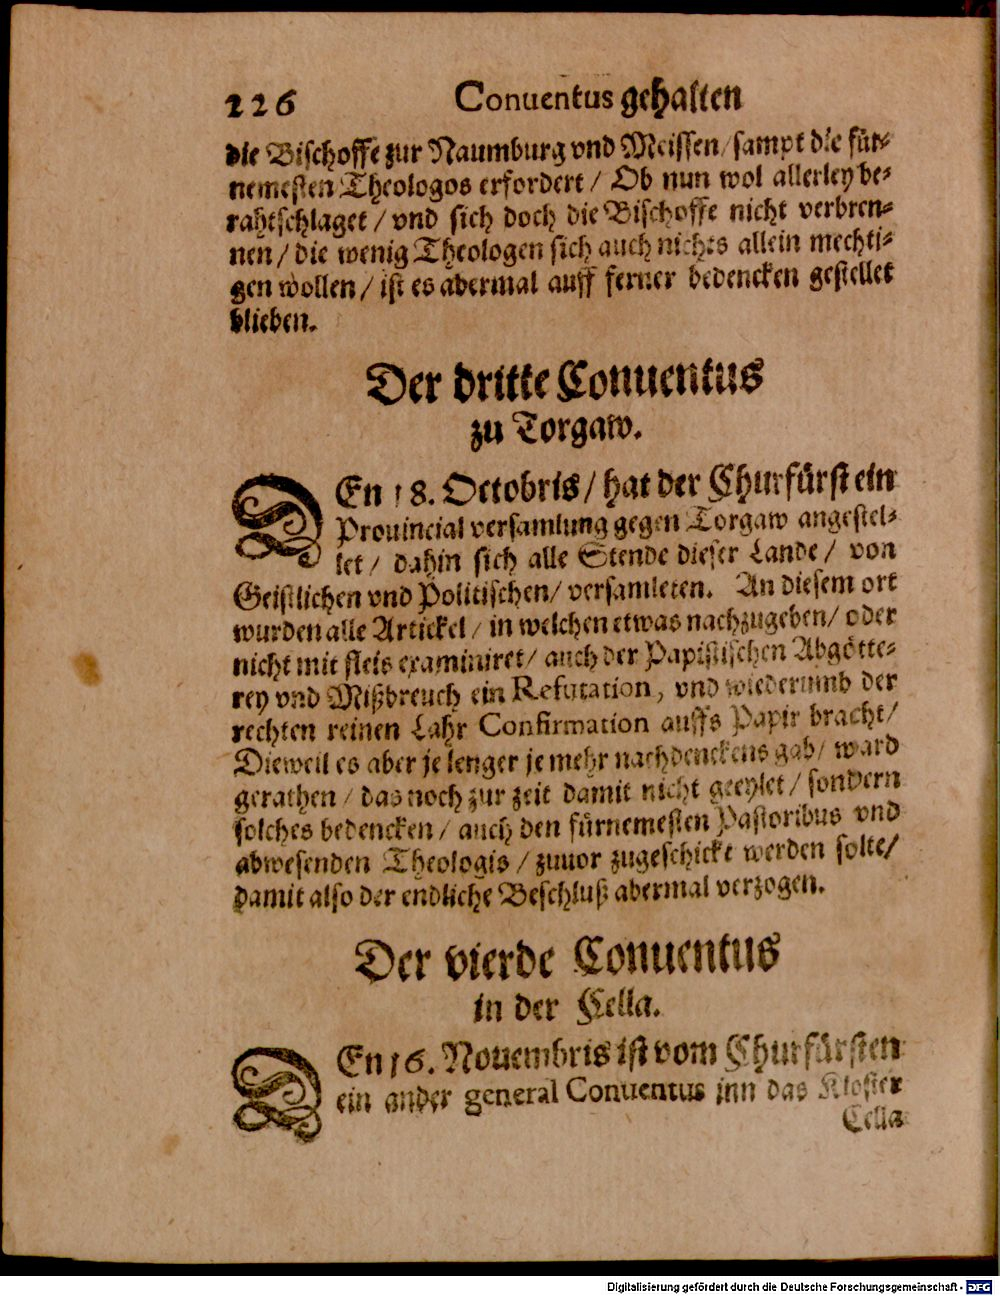 226 Conuentus gehalten
die Bischoffe zur Naumburg vnd Meissen/sampt die für-
nemesten Theologos erfordert / Ob nun wol allerley be-
rahtschlaget / vnd sich doch die Bischoffe nicht verbren-
nen / die wenig Theologen sich auch nichts allein mechti-
gen wollen / ist es abermal auff ferner bedencken gestellet
blieben.
Der dritte Conuentus
zu Torgaw.
DEn 18. Octobris / hat der Churfürst ein
Prouincial versamlung gegen Torgaw angestel-
let / dahin sich alle Stende dieser Lande / von
Geistlichen vnd Politischen/ versamleten. An diesem ort
wurden alle Artickel / in welchen etwas nachzugeben/ oder
nicht mit fleis examiniret/ auch der Papistischen Abgötte-
rey vnd Mißbreuch ein Refutation, vnd wiederumb der
rechten reinen Lahr Confirmation auffs Papir bracht/
Dieweil es aber je lenger je mehr nachdenckens gab/ ward
gerathen / das noch zur zeit damit nicht geeylet / sondern
solches bedencken / auch den fürnemesten Pastoribus vnd
abwesenden Theologis / zuuor zugeschickt werden solte/
damit also der endliche Beschluß abermal verzogen.
Der vierde Conuentus
in der Cella.
DEn 16. Nouembris ist vom Churfürsten
ein ander general Conuentus inn das Kloster
Cella
Digitalisierung gefördert durch die Deutsche Forschungsgemeinschaft - DFG